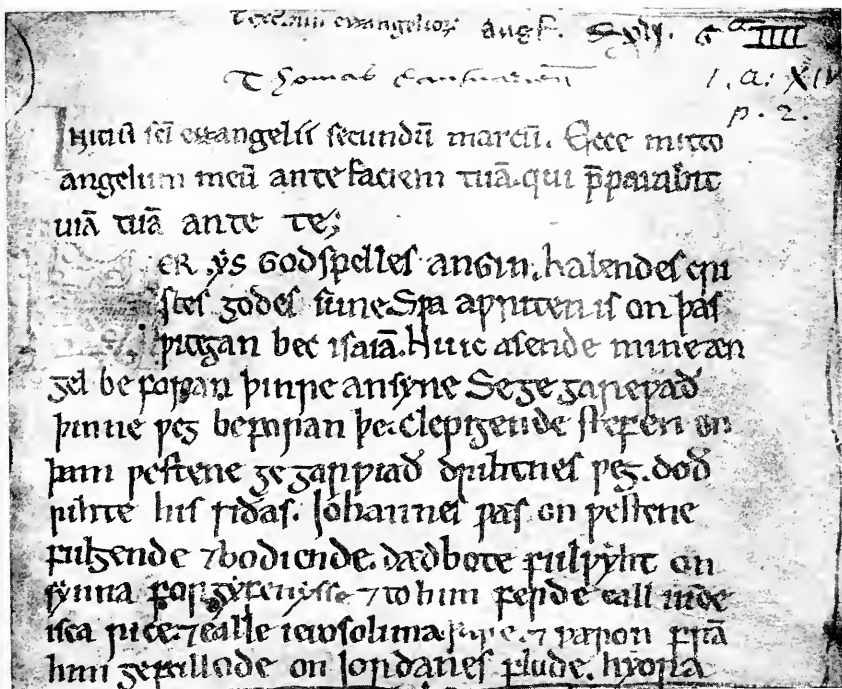 evangelioꝝ Gᵃ IIII
Thomas Cantuarien̄ I. a: XIV
p. 2.
Initiū sc̄i euuangelii secundū marcū. Ecce mitto
angelum meū ante faciem tuā. qui p̄parabit
uiā tuā ante te;
ER ẏs Godspelles anGin. halendes cri
stes godes sune. Sƿa aƿriten is on þas
ƿitegan bec isaiā. Nu ic asende mine æn
gel beforan þinre ansyne Se ge gareƿað
þinne ƿeg beforan þe. Clepigende stefen on
þam ƿestene ge garƿiað drihtnes ƿeg. doð
rihte his sidas. Johannes ƿas on ƿestene
fulgende ⁊ bodiende. dædbote fulƿẏht on
sẏnna forgẏfenẏsse ⁊ to him ferde eall iude
isca rice. ⁊ ealle ierosolima ƿare. ⁊ ƿaron frā
him gefullode on Jordanes flude. hyora